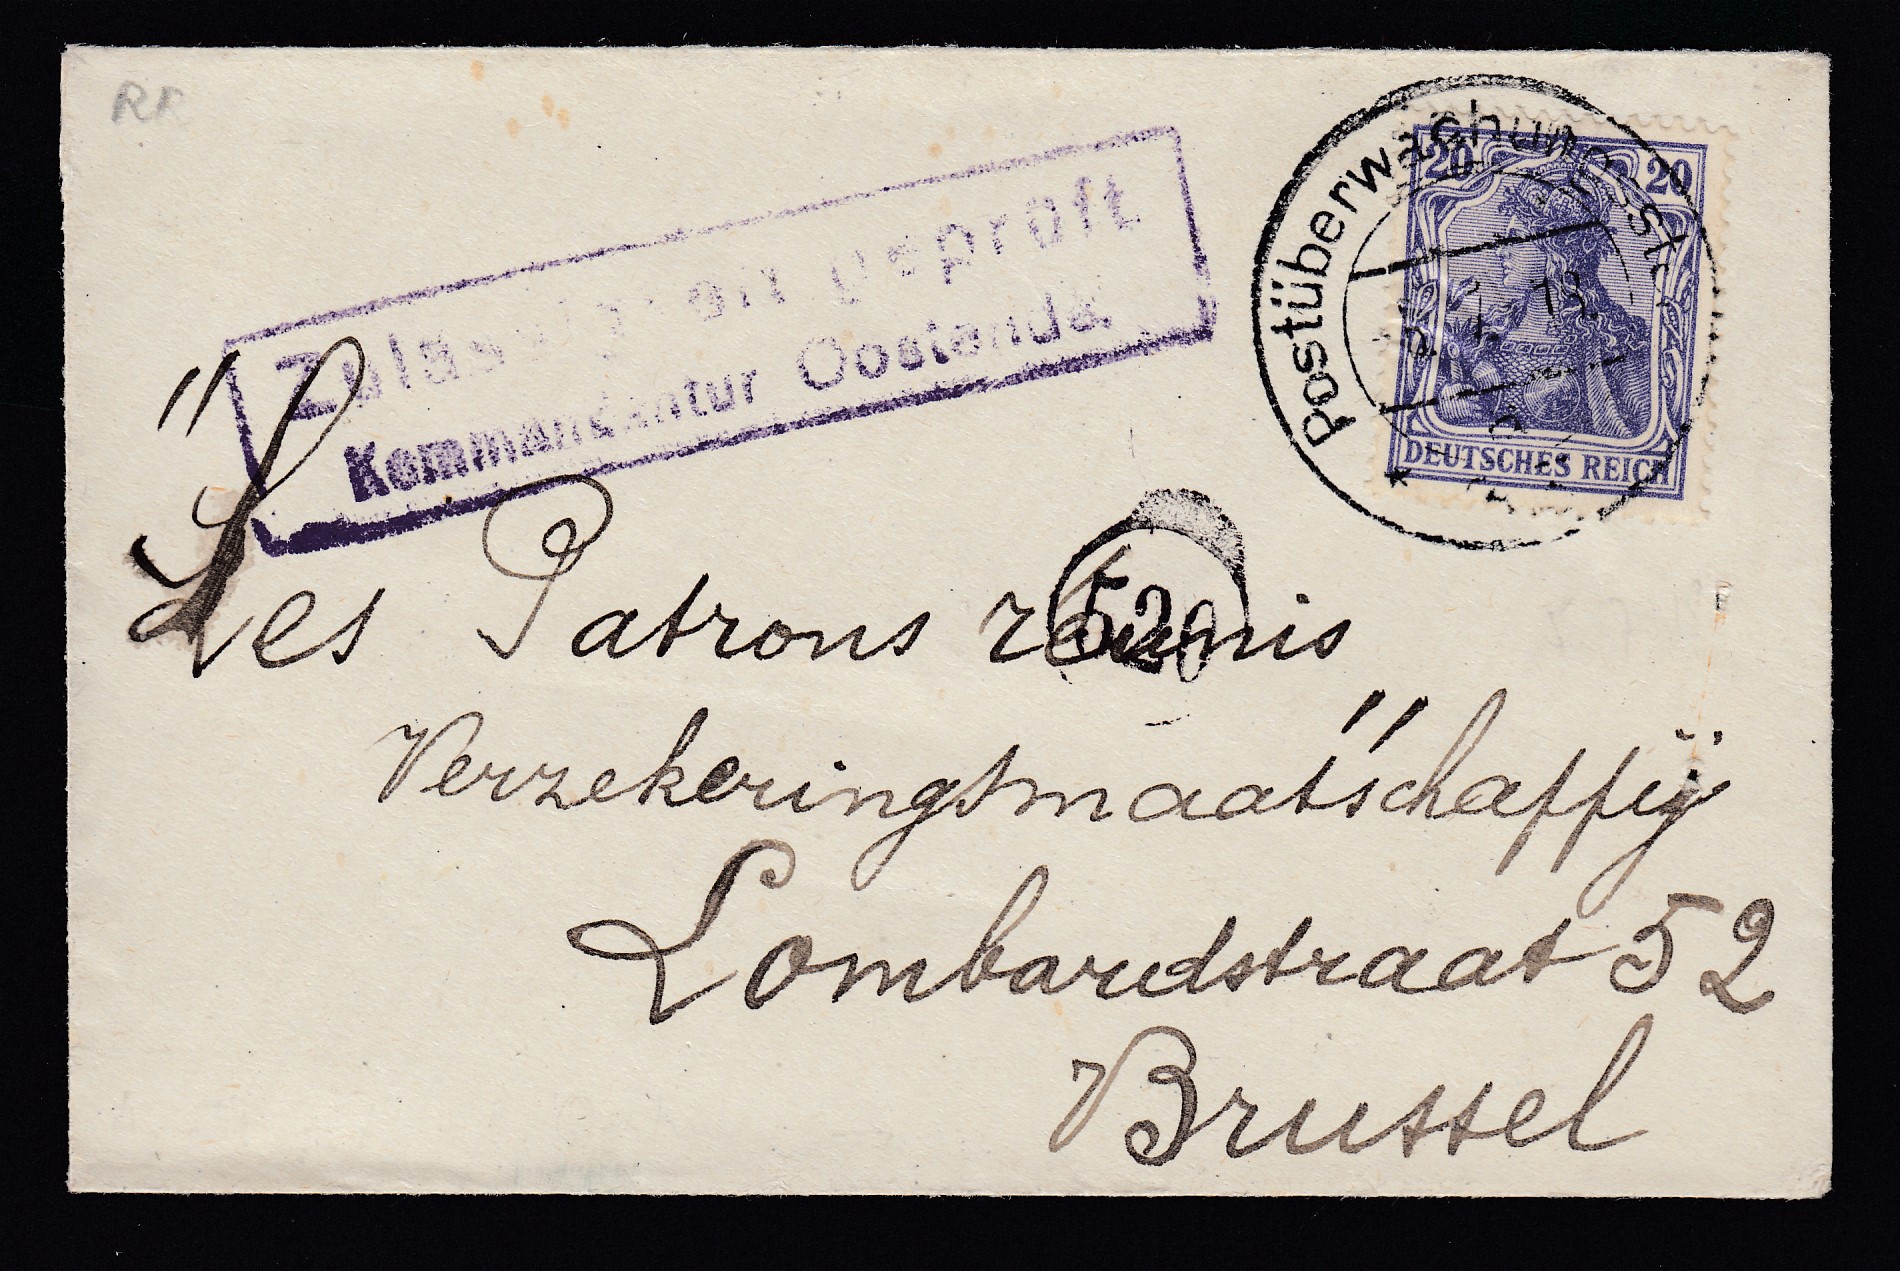 RK
Zulässigkeit geprüft
Kommandantur Oostende.
Postüberwachungsst
20 20
5. 4. 18
DEUTSCHES REICH
"Les Patrons réunis"
520
Verzekeringsmaatschappij
Lombardstraat 52
Brussel